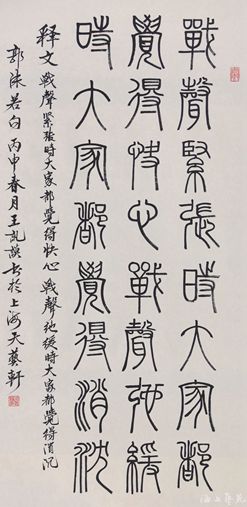 戰聲緊張時大家都
覺得快心戰聲弛緩
時大家都覺得消沈
釋文 戰聲緊張時大家都覺得快心 戰聲弛緩時大家都覺得消沉
郭沫若句 丙申春月王书於上海天藝軒